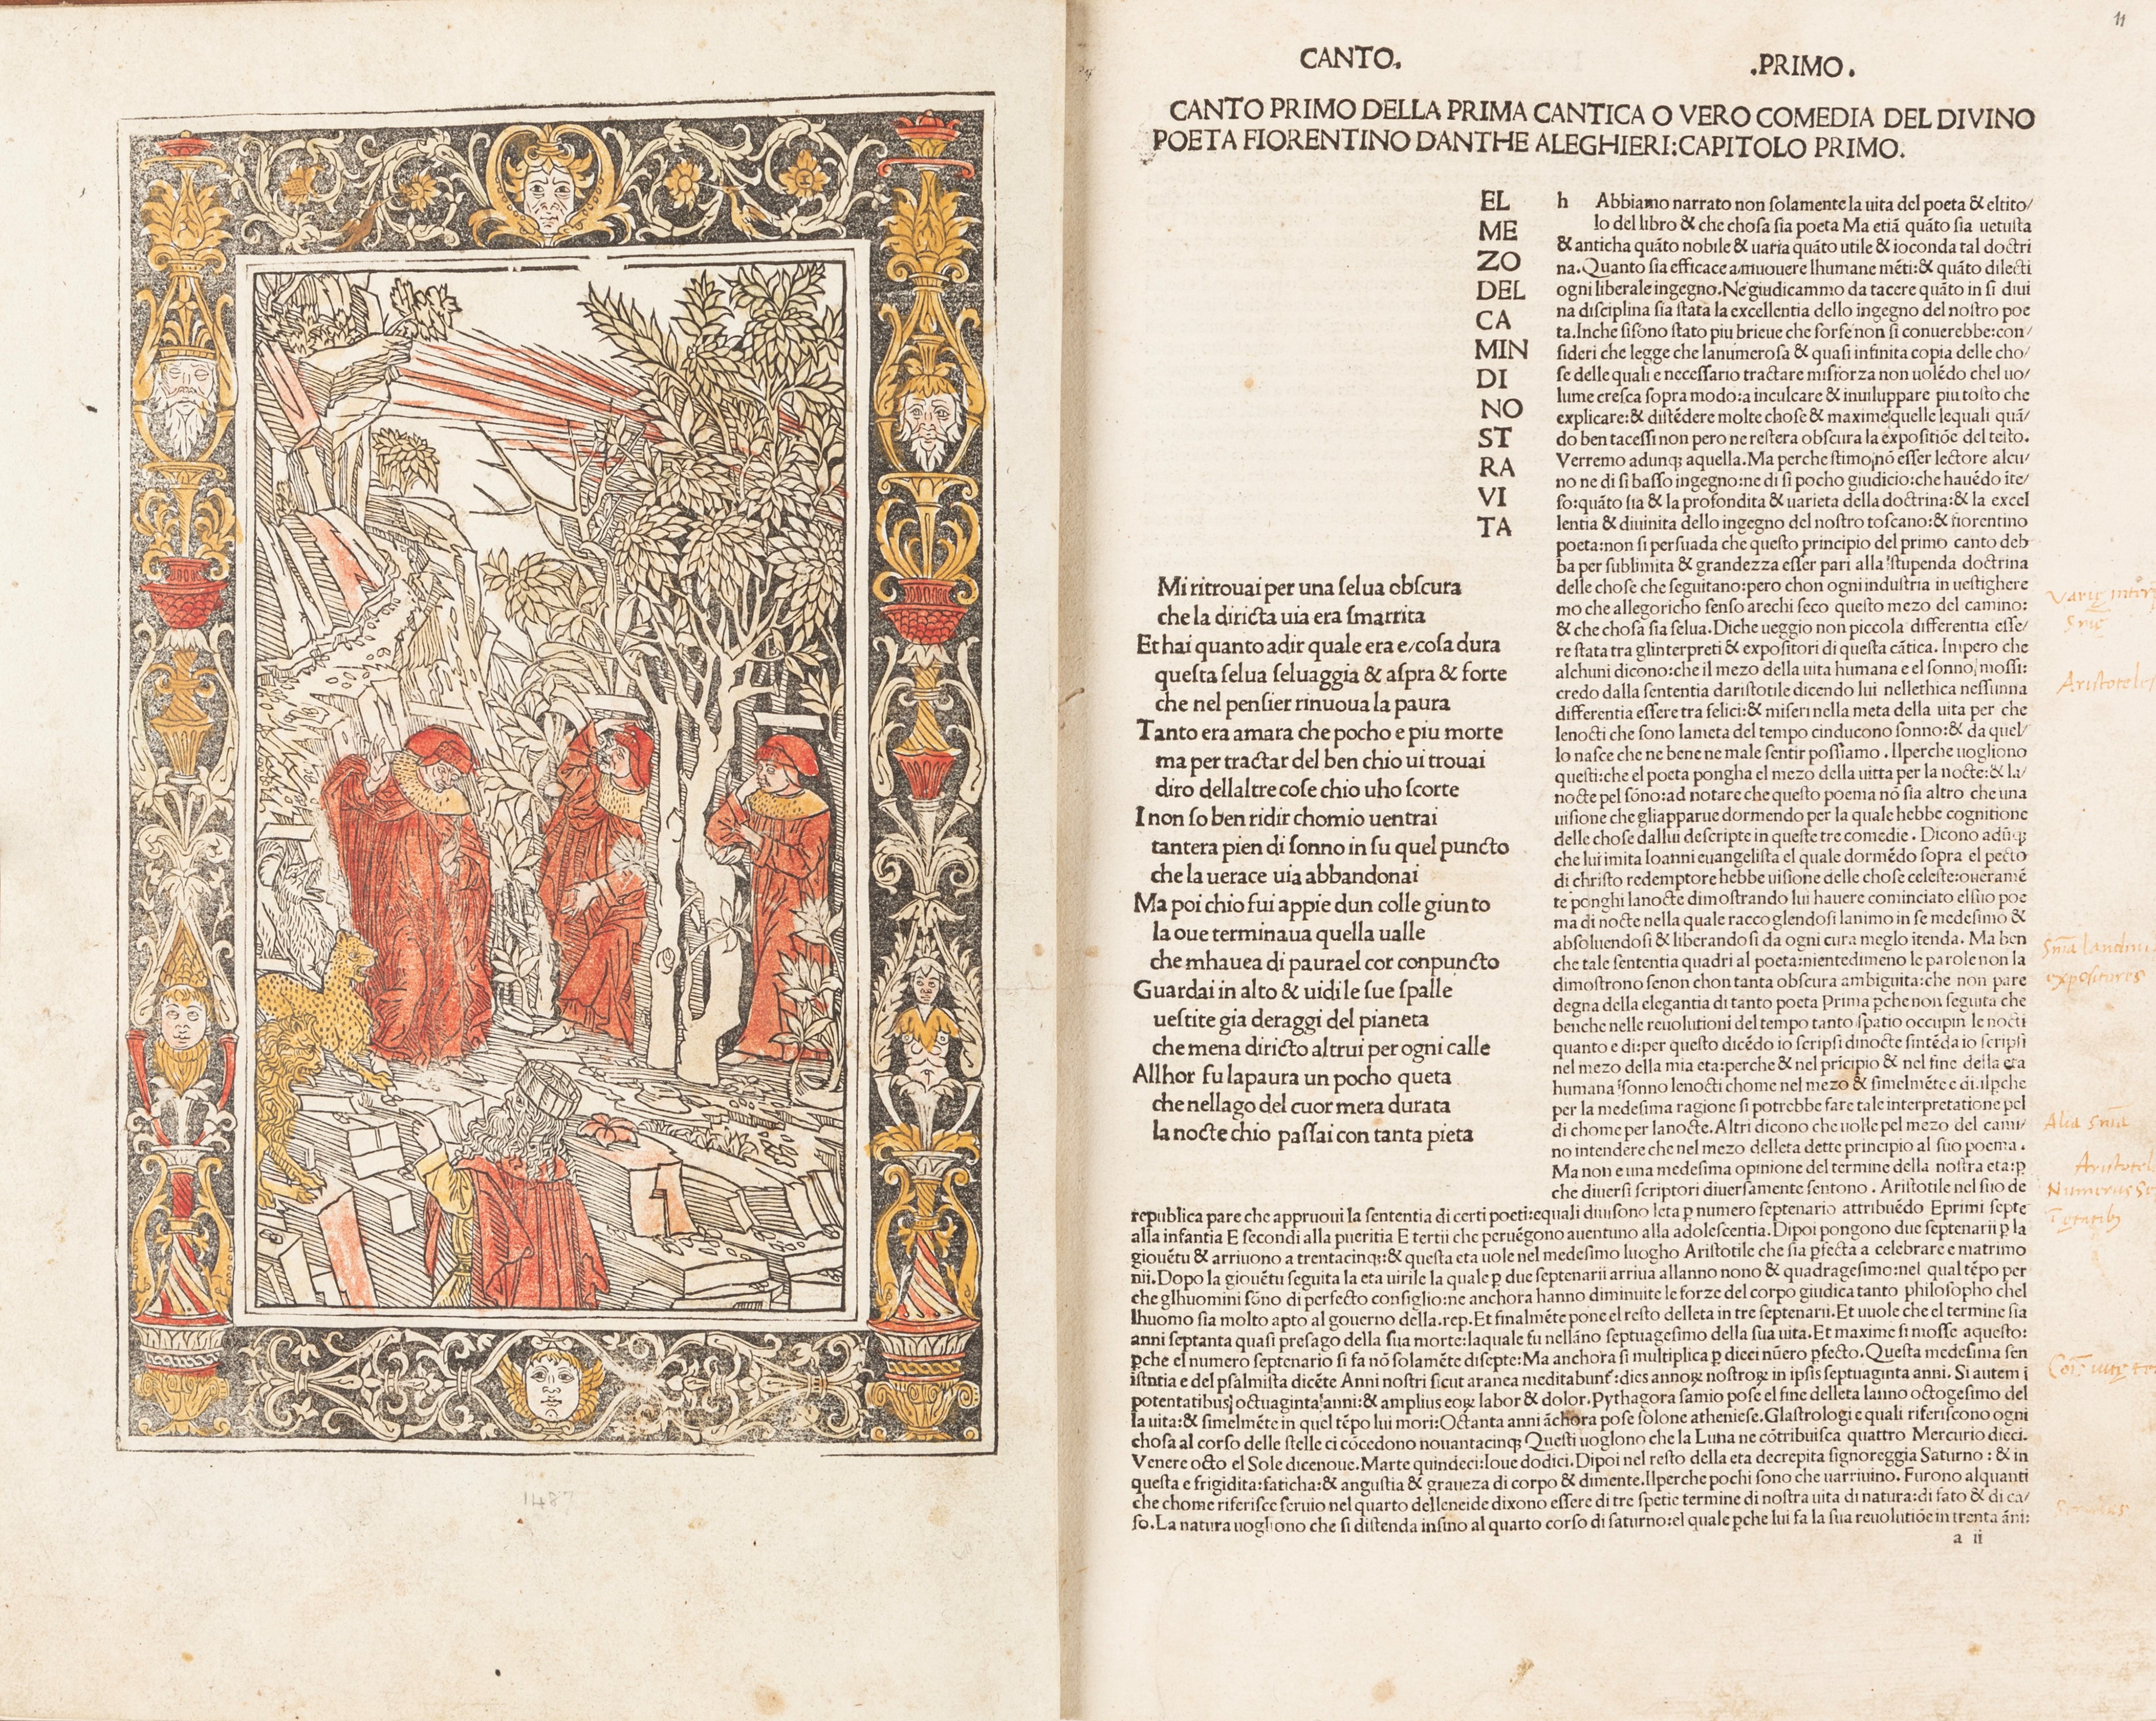 11
CANTO. .PRIMO.
CANTO PRIMO DELLA PRIMA CANTICA O VERO COMEDIA DEL DIVINO
POETA FIORENTINO DANTHE ALEGHIERI:CAPITOLO PRIMO.
EL
ME
ZO
DEL
CA
MIN
DI
NO
ST
RA
VI
TA
Mi ritrouai per una ſelua obſcura
che la diricta uia era ſmarrita
Et hai quanto adir quale era e/coſa dura
queſta ſelua ſeluaggia & aſpra & forte
che nel penſier rinuoua la paura
Tanto era amara che pocho e piu morte
ma per tractar del ben chio ui trouai
diro dellaltre coſe chio uho ſcorte
I non ſo ben ridir chomio uentrai
tantera pien di ſonno in ſu quel puncto
che la uerace uia abbandonai
Ma poi chio fui appie dun colle giunto
la oue terminaua quella ualle
che mhauea di paurael cor conpuncto
Guardai in alto & uidi le ſue ſpalle
ueſtite gia deraggi del pianeta
che mena diricto altrui per ogni calle
Allhor fu lapaura un pocho queta
che nellago del cuor mera durata
la nocte chio paſſai con tanta pieta
h Abbiamo narrato non ſolamente la uita del poeta & eltito/
lo del libro & che choſa ſia poeta Ma etiã quãto ſia uetuſta
& anticha quãto nobile & uaria quãto utile & ioconda tal doctri
na.Quanto ſia efficace amuouere lhumane mẽti:& quãto dilecti
ogni liberale ingegno.Ne giudicammo da tacere quãto in ſi diui
na diſciplina ſia ſtata la excellentia dello ingegno del noſtro poe
ta.Inche ſiſono ſtato piu brieue che forſe non ſi conuerebbe:con/
ſideri che legge che lanumeroſa & quaſi infinita copia delle cho/
ſe delle quali e neceſſario tractare miſforza non uolẽdo chel uo/
lume creſca ſopra modo:a inculcare & inuiluppare piu toſto che
explicare:& diſtẽdere molte choſe & maxime quelle lequali quã/
do ben taceſſi non pero ne reſtera obſcura la expoſitiõe del teſto.
Verremo adunq; aquella.Ma perche ſtimo nõ eſſer lectore alcu/
no ne di ſi baſſo ingegno:ne di ſi pocho giudicio:che hauẽdo ĩte/
ſo:quãto ſia & la profondita & uarieta della doctrina:& la excel
lentia & diuinita dello ingegno del noſtro toſcano:& fiorentino
poeta:non ſi perſuada che queſto principio del primo canto deb
ba per ſublimita & grandezza eſſer pari alla ſtupenda doctrina
delle choſe che ſeguitano:pero chon ogni induſtria in ueſtighere
mo che allegoricho ſenſo arechi ſeco queſto mezo del camino:
& che choſa ſia ſelua.Diche ueggio non piccola differentia eſſe/
re ſtata tra glinterpreti & expoſitori di queſta cãtica. Impero che
alchuni dicono:che il mezo della uita humana e el ſonno moſſi:
credo dalla ſententia dariſtotile dicendo lui nellethica neſſunna
differentia eſſere tra felici:& miſeri nella meta della uita per che
lenocti che ſono lameta del tempo cinducono ſonno:& da quel/
lo naſce che ne bene ne male ſentir poſſiamo . Ilperche uogliono
queſti:che el poeta pongha el mezo della uitta per la nocte:& la/
nocte pel ſõno:ad notare che queſto poema nõ ſia altro che una
uiſione che gliapparue dormendo per la quale hebbe cognitione
delle choſe dallui deſcripte in queſte tre comedie . Dicono adũq;
che lui imita Ioanni euangeliſta el quale dormẽdo ſopra el pecto
di chriſto redemptore hebbe uiſione delle choſe celeſte:oueramẽ
te ponghi lanocte dimoſtrando lui hauere cominciato elſuo poe
ma di nocte nella quale raccoglendoſi lanimo in ſe medeſimo &
abſoluendoſi & liberandoſi da ogni cura meglo itenda. Ma ben
che tale ſententia quadri al poeta:nientedimeno le parole non la
dimoſtrono ſenon chon tanta obſcura ambiguita:che non pare
degna della elegantia di tanto poeta Prima ꝑche non ſeguita che
benche nelle reuolutioni del tempo tanto ſpatio occupin le nocti
quanto e di:per queſto dicẽdo io ſcripſi dinocte ſintẽda io ſcripſi
nel mezo della mia eta:perche & nel prĩcipio & nel fine della eta
humana ſonno lenocti chome nel mezo & ſimelmẽte e di.ilꝑche
per la medeſima ragione ſi potrebbe fare tale interpretatione pel
di chome per lanocte.Altri dicono che uolle pel mezo del cami/
no intendere che nel mezo delleta dette principio al ſuo poema .
Ma non e una medeſima opinione del termine della noſtra eta:ꝑ
che diuerſi ſcriptori diuerſamente ſentono . Ariſtotile nel ſuo de
republica pare che appruoui la ſententia di certi poeti:equali diuiſono leta ꝑ numero ſeptenario attribuẽdo Eprimi ſepte
alla infantia E ſecondi alla pueritia E tertii che peruẽgono auentuno alla adoleſcentia.Dipoi pongono due ſeptenarii ꝑ la
giouẽtu & arriuono a trentacinq;:& queſta eta uole nel medeſimo luogho Ariſtotile che ſia ꝑfecta a celebrare e matrimo
nii.Dopo la giouẽtu ſeguita la eta uirile la quale ꝑ due ſeptenarii arriua allanno nono & quadrageſimo:nel qual tẽpo per
che glhuomini ſõno di perfecto conſiglio:ne anchora hanno diminuite le forze del corpo giudica tanto philoſopho chel
lhuomo ſia molto apto al gouerno della.rep.Et finalmẽte pone el reſto delleta in tre ſeptenarii.Et uuole che el termine ſia
anni ſeptanta quaſi preſago della ſua morte:laquale fu nellãno ſeptuageſimo della ſua uita.Et maxime ſi moſſe aqueſto:
ꝑche el numero ſeptenario ſi fa nõ ſolamẽte diſepte:Ma anchora ſi multiplica ꝑ dieci nũero ꝑfecto.Queſta medeſima ſen
iſtntia e del pſalmiſta dicẽte Anni noſtri ſicut aranea meditabunt:dies annoꝝ noſtroꝝ in ipſis ſeptuaginta anni. Si autem ĩ
potentatibus octuaginta anni:& amplius eoꝝ labor & dolor.Pythagora ſamio poſe el fine delleta lanno octogeſimo del
la uita:& ſimelmẽte in quel tẽpo lui mori:Octanta anni ãchora poſe ſolone athenieſe.Glaſtrologi e quali riferiſcono ogni
choſa al corſo delle ſtelle ci cõcedono nouantacinq; Queſti uoglono che la Luna ne cõtribuiſca quattro Mercurio dieci.
Venere octo el Sole dicenoue.Marte quindeci:Ioue dodici.Dipoi nel reſto della eta decrepita ſignoreggia Saturno : & in
queſta e frigidita:faticha:& anguſtia & graueza di corpo & dimente.Ilperche pochi ſono che uarriuino. Furono alquanti
che chome riferiſce ſeruio nel quarto delleneide dixono eſſere di tre ſpetie termine di noſtra uita di natura:di fato & di ca/
ſo.La natura uogliono che ſi diſtenda inſino al quarto corſo di ſaturno:el quale ꝑche lui fa la ſua reuolutiõe in trenta ãni:
a ii
Aristoteles
expositores
1487